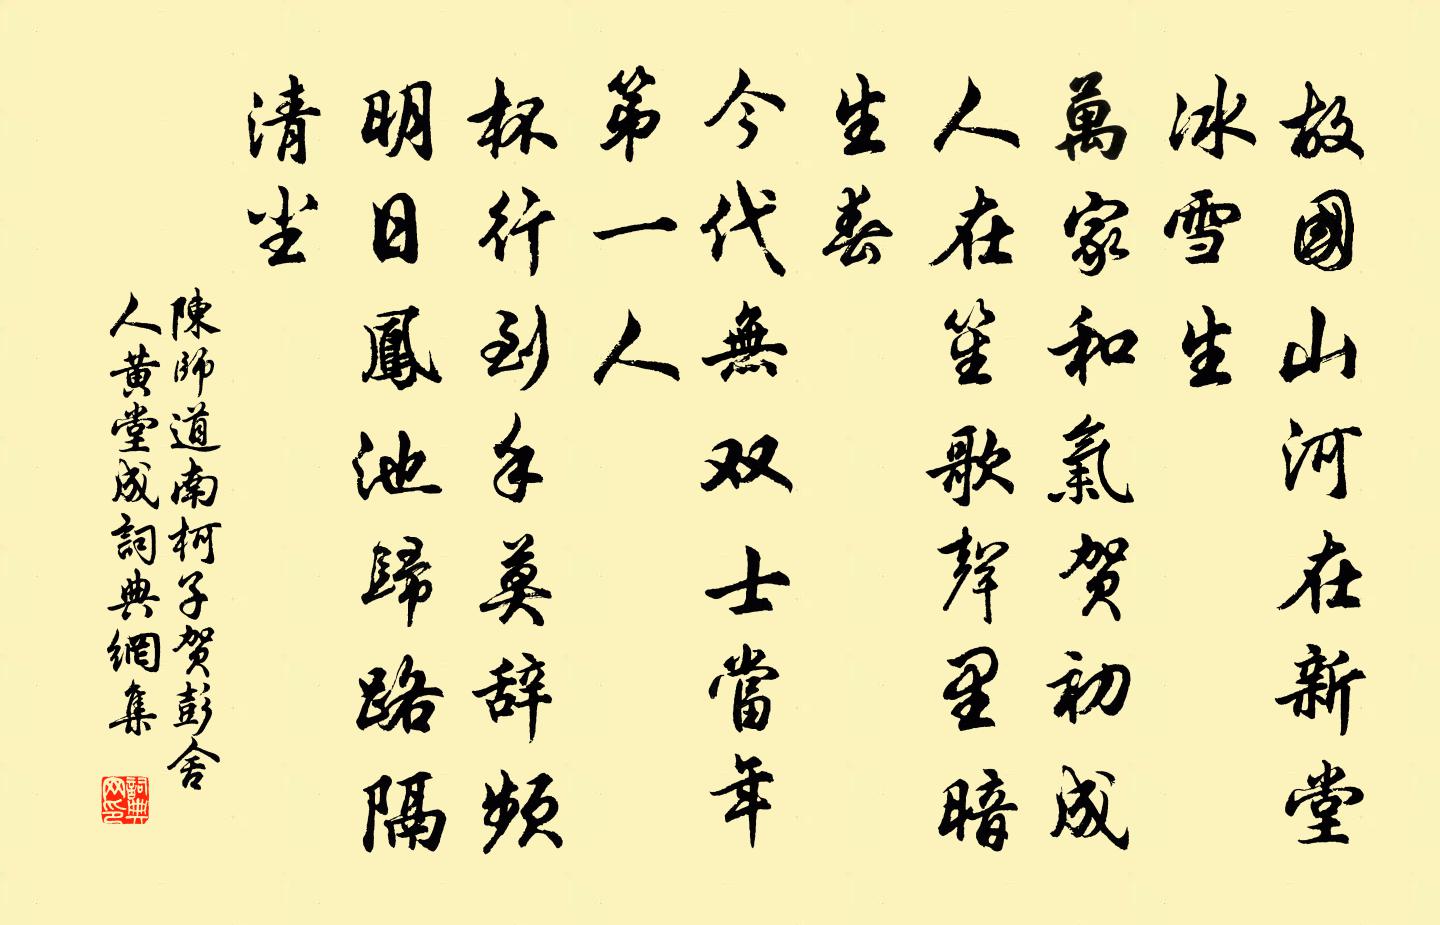 故國山河在新堂
冰雪生
萬家和氣贺初成
人在笙歌聲里暗
生春
今代無双士當年
第一人
杯行到手莫辞頻
明日鳳池歸路隔
清尘
陳師道南柯子贺彭舍
人黄堂成詞典網集
詞典
网印